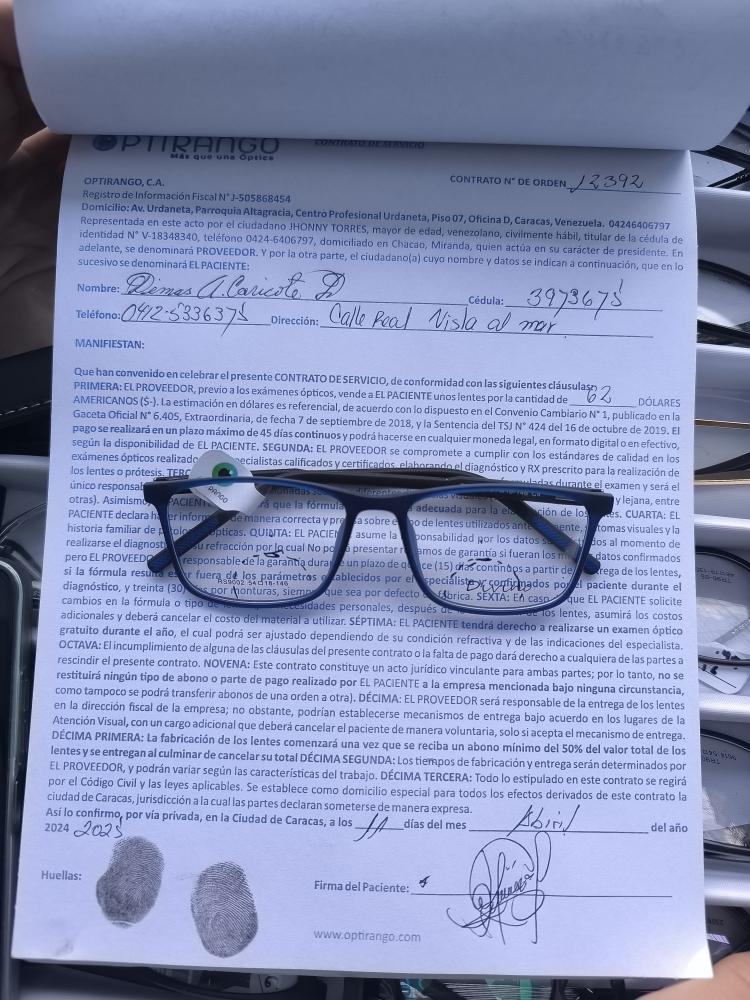 OPTIRANGO
CONTRATO DE SERVICIO
Más que una Óptica
CONTRATO N° DE ORDEN 12392
OPTIRANGO, C.A.
Registro de Información Fiscal N° J-505868454
Domicilio: Av. Urdaneta, Parroquia Altagracia, Centro Profesional Urdaneta, Piso 07, Oficina D, Caracas, Venezuela. 04246406797
Representada en este acto por el ciudadano JHONNY TORRES, mayor de edad, venezolano, civilmente hábil, titular de la cédula de
identidad N° V-18348340, teléfono 0424-6406797, domiciliado en Chacao, Miranda, quien actúa en su carácter de presidente. En
adelante, se denominará PROVEEDOR. Y por la otra parte, el ciudadano(a) cuyo nombre y datos se indican a continuación, que en lo
sucesivo se denominará EL PACIENTE:
Nombre: Dimas A. Caricote D Cédula: 3973675
Teléfono: 0412-5336375 Dirección: Calle Real Vista al mar
MANIFIESTAN:
Que han convenido en celebrar el presente CONTRATO DE SERVICIO, de conformidad con las siguientes cláusulas:
PRIMERA: EL PROVEEDOR, previo a los exámenes ópticos, vende a EL PACIENTE unos lentes por la cantidad de 62 DÓLARES
AMERICANOS ($-). La estimación en dólares es referencial, de acuerdo con lo dispuesto en el Convenio Cambiario N° 1, publicado en la
Gaceta Oficial N° 6.405, Extraordinaria, de fecha 7 de septiembre de 2018, y la Sentencia del TSJ N° 424 del 16 de octubre de 2019. El
pago se realizará en un plazo máximo de 45 días continuos y podrá hacerse en cualquier moneda legal, en formato digital o en efectivo,
según la disponibilidad de EL PACIENTE. SEGUNDA: EL PROVEEDOR se compromete a cumplir con los estándares de calidad en los
exámenes ópticos realizado especialistas calificados y certificados, elaborando el diagnóstico y RX prescrito para la realización de
los lentes o prótesis. durante el examen y será el
único responsa y lejana, entre
otras). Asimismo, PACIENTE que la fórmula adecuada para la CUARTA: EL
PACIENTE declara ha er inform de manera correcta y pre sobre de lentes utilizados síntomas visuales y la
historia familiar de ópticas. QUINTA: EL PACIENTE asume la responsabilidad por los datos al momento de
realizarse el diagnost su refracción por lo cual No po presentar reclamos de garantía si fueran los datos confirmados
pero EL PROVEED responsable de la garantía durante un plazo de quince (15) días continuos a partir de entrega de los lentes,
si la fórmula resulta fuera de los parámetros establecidos por el especialista y confirmados por el paciente durante el
RS9002 54□16-146
Divino
diagnóstico, y treinta (30) por monturas, siemp que sea por defecto fábrica. SEXTA: En caso que EL PACIENTE solicite
cambios en la fórmula o tipo de necesidades personales, después de los lentes, asumirá los costos
adicionales y deberá cancelar el costo del material a utilizar. SÉPTIMA: EL PACIENTE tendrá derecho a realizarse un examen óptico
gratuito durante el año, el cual podrá ser ajustado dependiendo de su condición refractiva y de las indicaciones del especialista.
OCTAVA: El incumplimiento de alguna de las cláusulas del presente contrato o la falta de pago dará derecho a cualquiera de las partes a
rescindir el presente contrato. NOVENA: Este contrato constituye un acto jurídico vinculante para ambas partes; por lo tanto, no se
restituirá ningún tipo de abono o parte de pago realizado por EL PACIENTE a la empresa mencionada bajo ninguna circunstancia,
como tampoco se podrá transferir abonos de una orden a otra). DÉCIMA: EL PROVEEDOR será responsable de la entrega de los lentes
en la dirección fiscal de la empresa; no obstante, podrían establecerse mecanismos de entrega bajo acuerdo en los lugares de la
Atención Visual, con un cargo adicional que deberá cancelar el paciente de manera voluntaria, solo si acepta el mecanismo de entrega.
DÉCIMA PRIMERA: La fabricación de los lentes comenzará una vez que se reciba un abono mínimo del 50% del valor total de los
lentes y se entregan al culminar de cancelar su total DÉCIMA SEGUNDA: Los tiempos de fabricación y entrega serán determinados por
EL PROVEEDOR, y podrán variar según las características del trabajo. DÉCIMA TERCERA: Todo lo estipulado en este contrato se regirá
por el Código Civil y las leyes aplicables. Se establece como domicilio especial para todos los efectos derivados de este contrato la
ciudad de Caracas, jurisdicción a la cual las partes declaran someterse de manera expresa.
Así lo confirmo, por vía privada, en la Ciudad de Caracas, a los 11 días del mes Abril del año
2024 2025
Huellas:
Firma del Paciente:
www.optirango.com